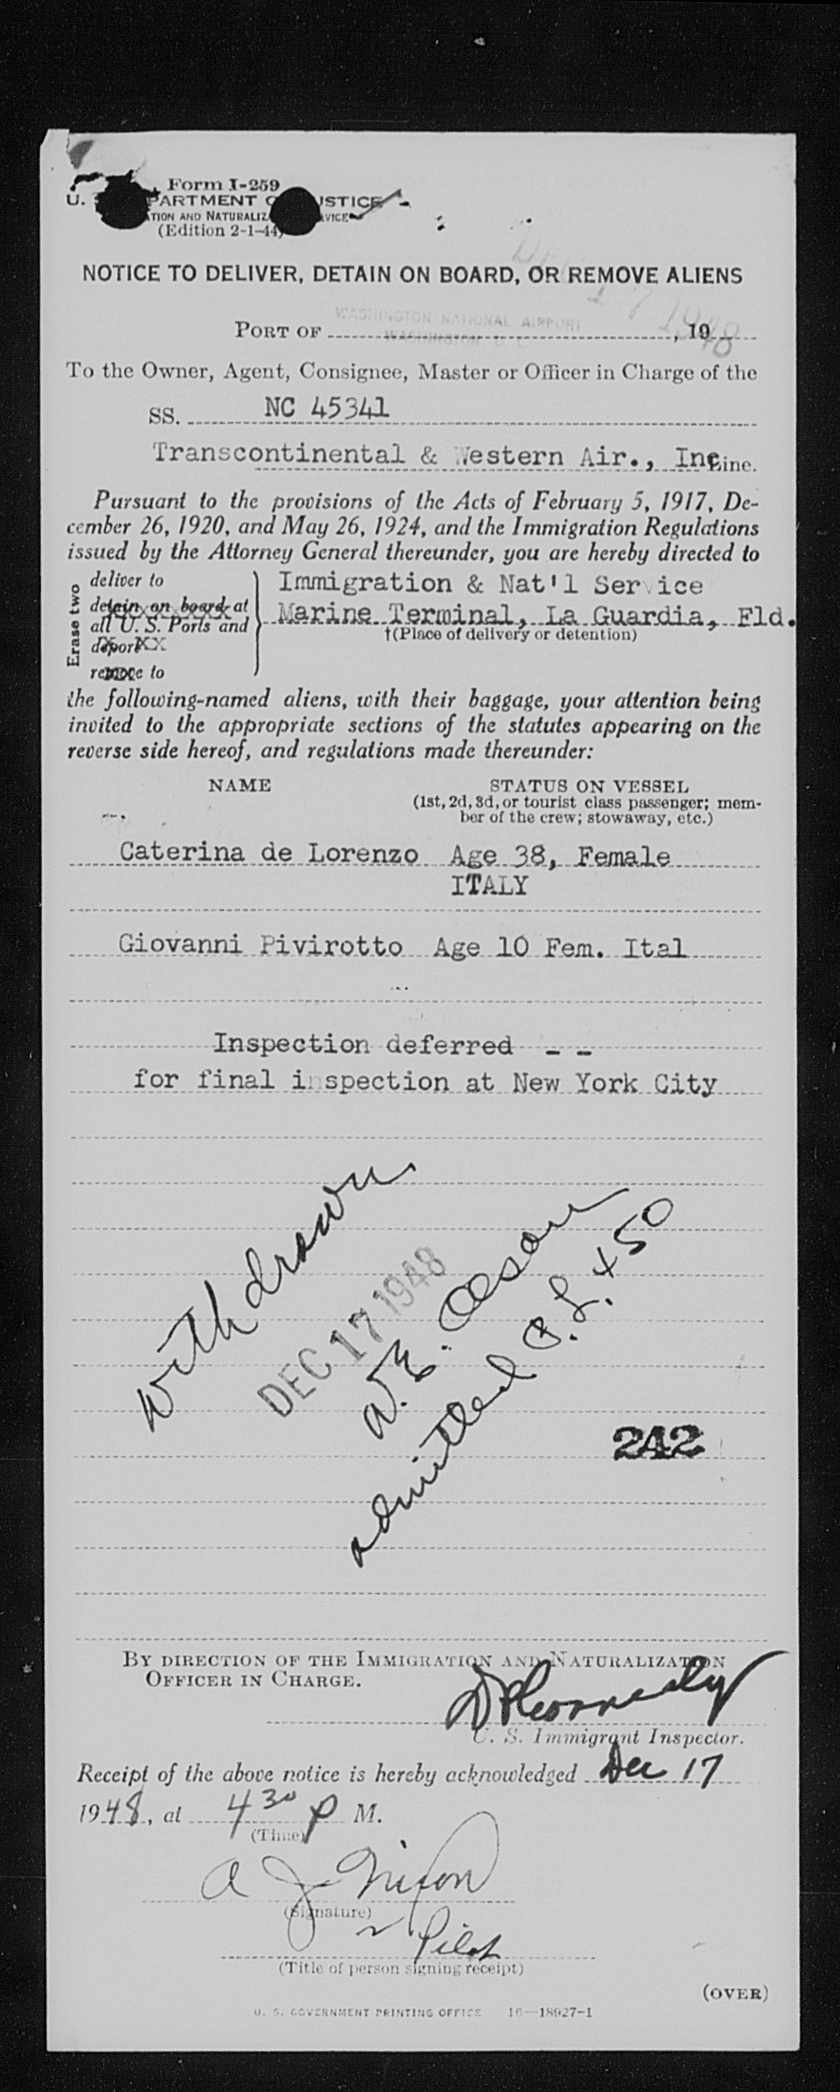 Form I-259
U. S. DEPARTMENT OF JUSTICE
NATURALIZ SERVICE
(Edition 2-1-44)
NOTICE TO DELIVER, DETAIN ON BOARD, OR REMOVE ALIENS
DEC 17 1948
WASHINGTON NATIONAL AIRPORT
WASHINGTON D. C.
PORT OF , 1948
To the Owner, Agent, Consignee, Master or Officer in Charge of the
SS. NC 45341
Transcontinental & Western Air., Inc Line.
Pursuant to the provisions of the Acts of February 5, 1917, De-
cember 26, 1920, and May 26, 1924, and the Immigration Regulations
issued by the Attorney General thereunder, you are hereby directed to
Erase two
deliver to
detain on board at
all U. S. Ports and
deport
remove to
Immigration & Nat'l Service
Marine Terminal, La Guardia, Fld.
†(Place of delivery or detention)
the following-named aliens, with their baggage, your attention being
invited to the appropriate sections of the statutes appearing on the
reverse side hereof, and regulations made thereunder:
NAME STATUS ON VESSEL
(1st, 2d, 3d, or tourist class passenger; mem-
ber of the crew; stowaway, etc.)
Caterina de Lorenzo Age 38, Female
ITALY
Giovanni Pivirotto Age 10 Fem. Ital
Inspection deferred - -
for final inspection at New York City
withdrawn
DEC 17 1948
W.E. Olson
admitted P.L. 450
242
BY DIRECTION OF THE IMMIGRATION AND NATURALIZATION
OFFICER IN CHARGE.
U. S. Immigrant Inspector.
Receipt of the above notice is hereby acknowledged Dec 17
1948, at 4 30 P M.
(Time)
A J Nixon
(Signature)
Pilot
(Title of person signing receipt)
(OVER)
U. S. GOVERNMENT PRINTING OFFICE 16—18927-1